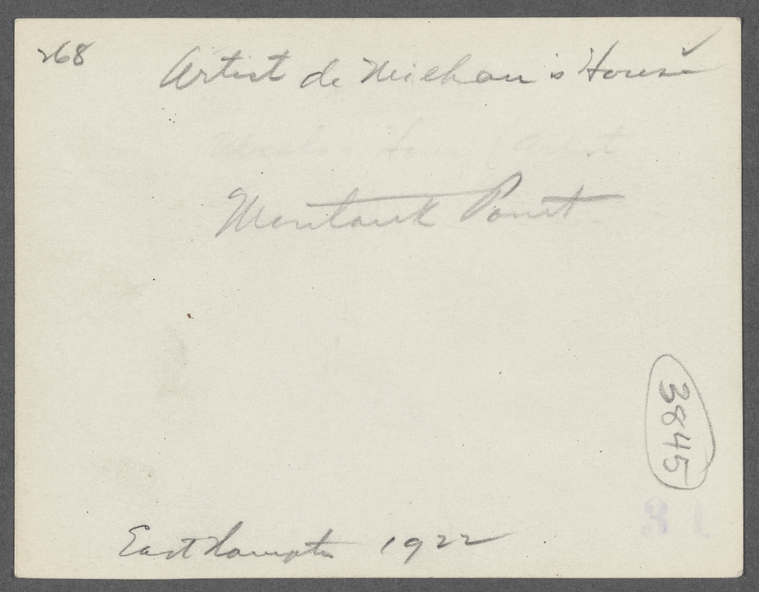 268
Artist de Meehan's House
Montauk Point
3845
31
East Hampton 1922